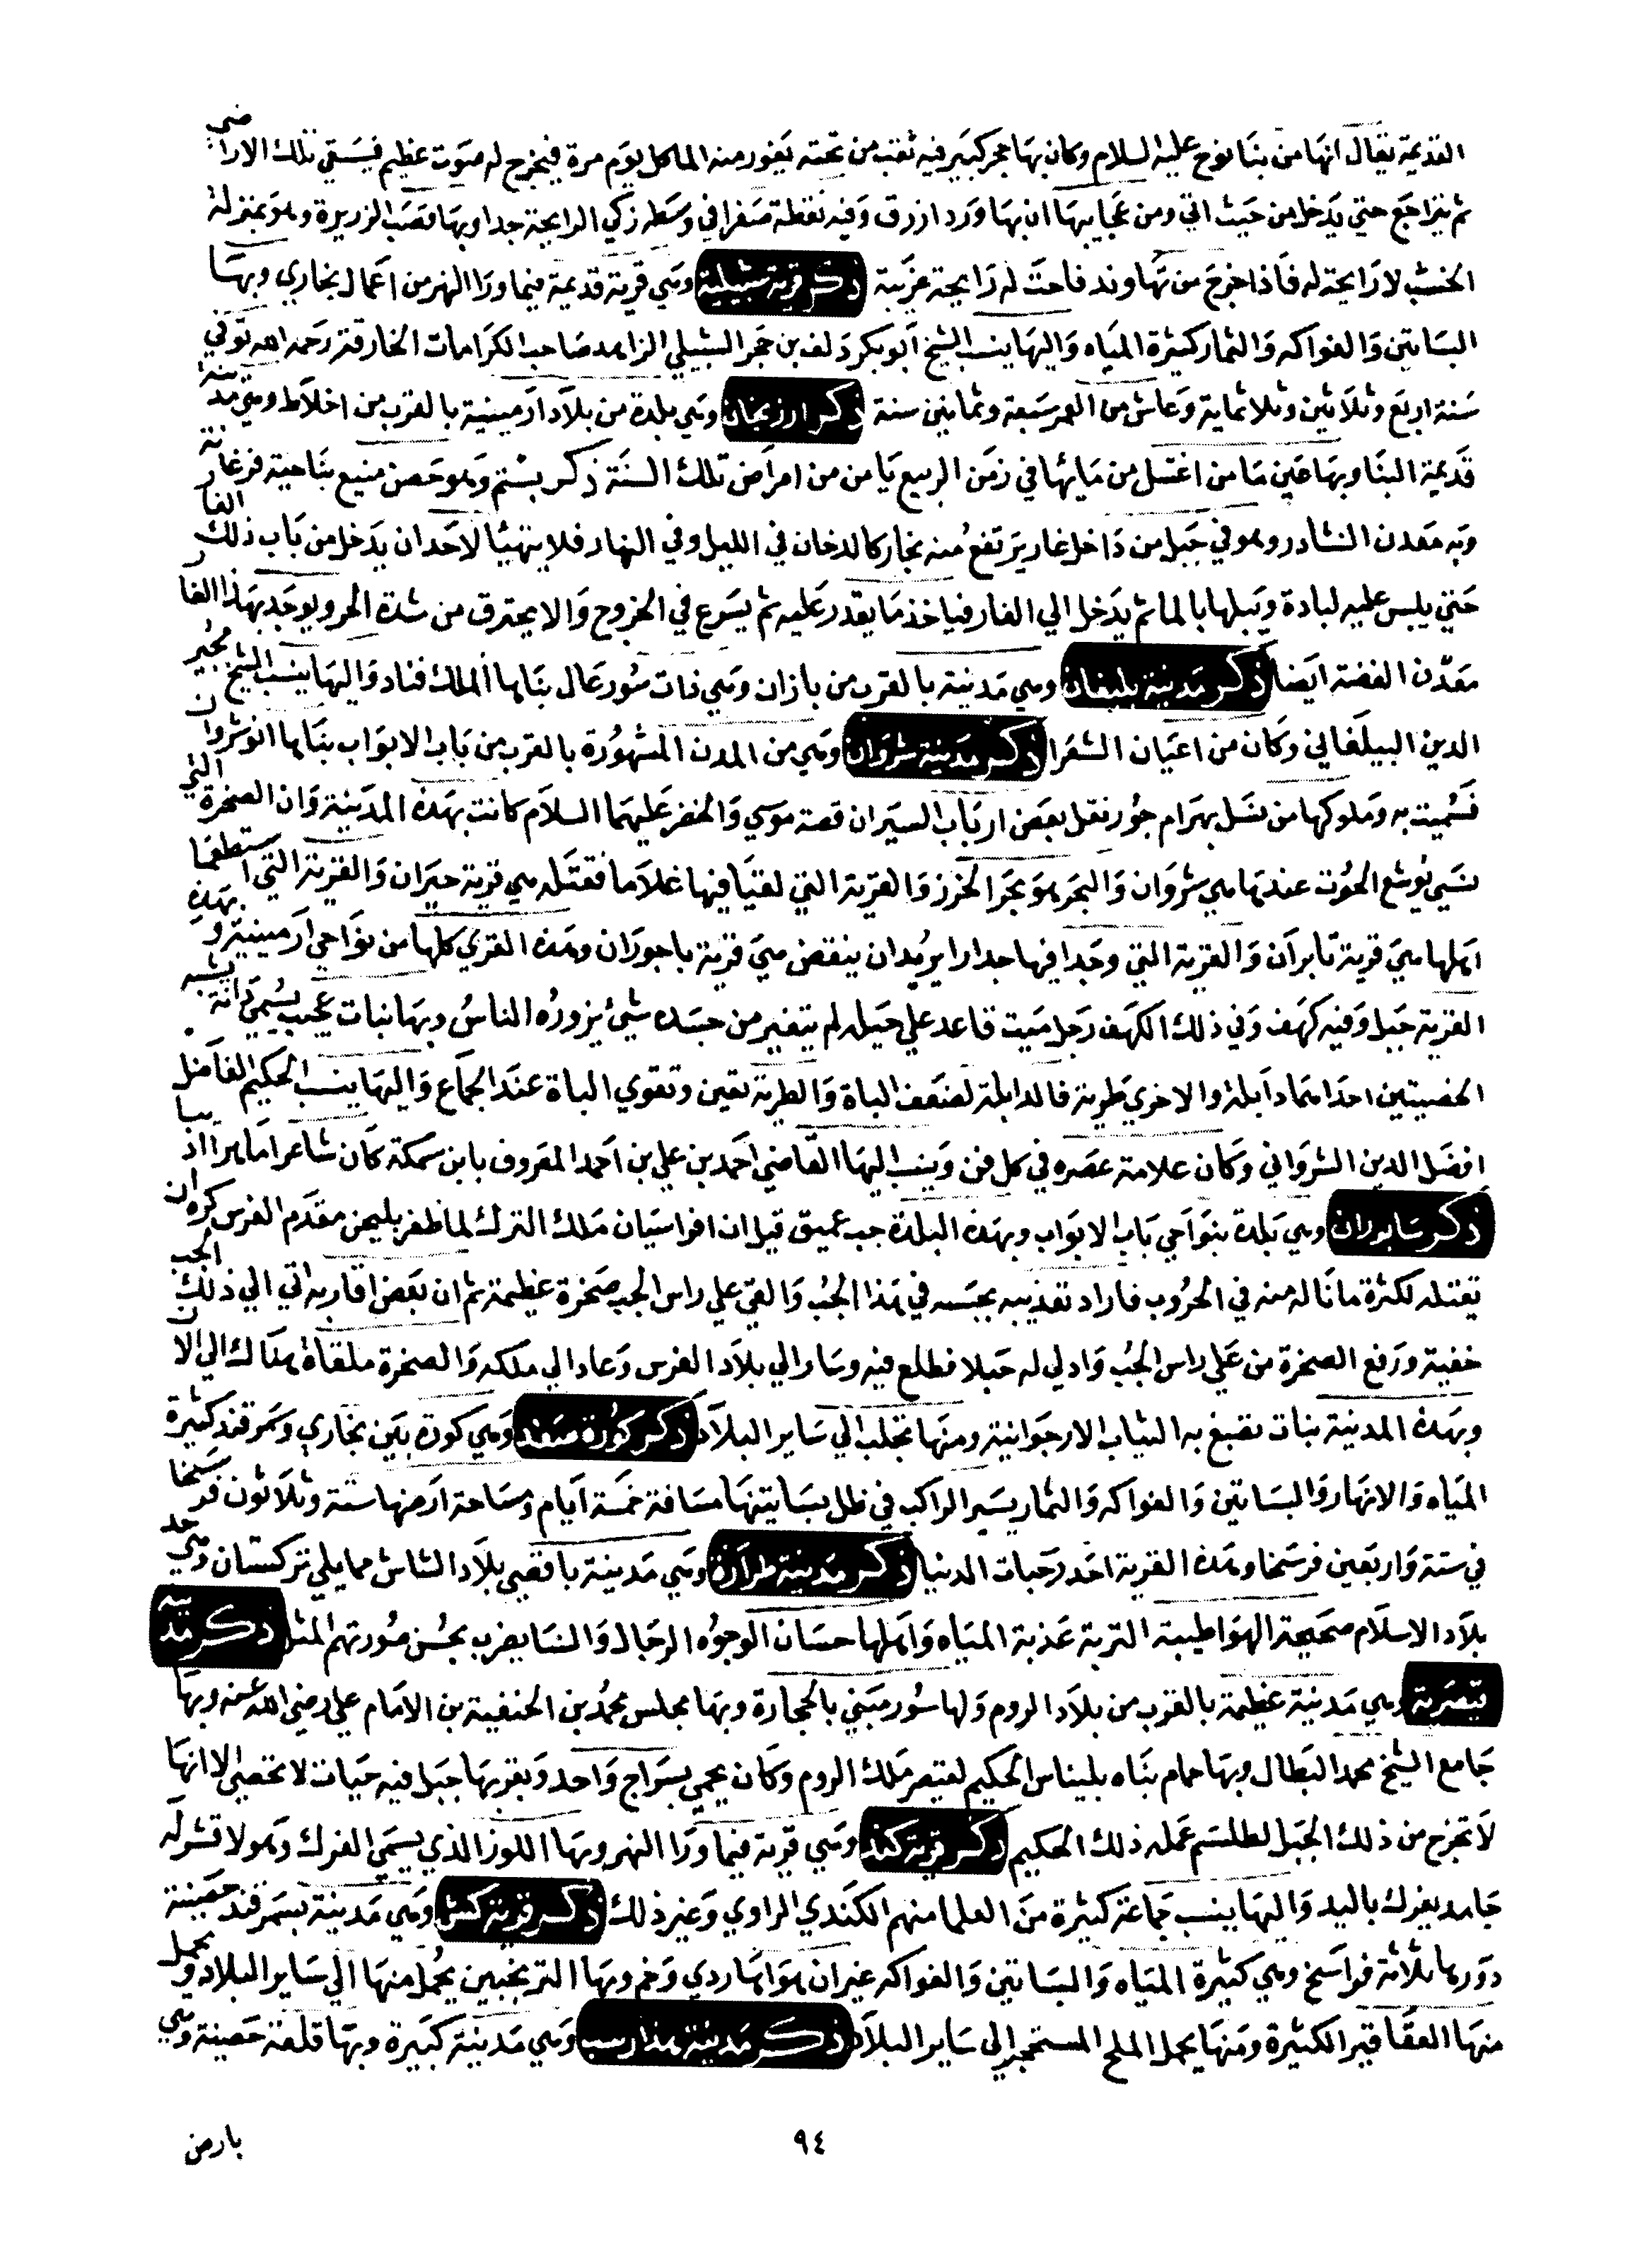 القديمة يقال انها من بنا نوح عليه السلام وكان بها حجر كبير فيه ثقب من تحته يفور منه الما كل يوم مرة فيخرج له صوت عظيم فيسقي تلك الاراضي
ثم يتراجع حتي يدخل من حيث اتي ومن عجايبها ان بها ورد ازرق وفيه نقطة صفرا في وسطه زكي الرايحة جدا وبها قصب الزريرة وهو بمنزلة
الخشب لا رايحة له فاذا خرج من نهاوند فاحت له رايحة غريبة ذكر قرية شبيلية وهي قرية قديمة فيما ورا النهر من اعمال بخاري وبها
البساتين والفواكه والثمار كثيرة المياه واليها ينسب الشيخ ابو بكر دلف بن حجر الشبيلي الزاهد صاحب الكرامات الخارقة رحمه الله توفي
سنة اربع وثلاثين وثلاثماية وعاش من العمر سبعة وثمانين سنة ذكر ارزنجان وهي بلدة من بلاد ارمينية بالقرب من اخلاط وهي مدينة
قديمة البنا وبها عين ما من اغتسل من مايها في زمن الربيع يامن من امراض تلك السنة ذكر بستم وهو حصن منيع بناحية فرغانة
وبه معدن النشادر وهو في جبل من داخل غار يرتفع منه بخار كالدخان في الليل وفي النهار فلا يتهيا لاحد ان يدخل من باب ذلك الغار
حتي يلبس عليه لبادة ويبلها بالما ثم يدخل الي الغار فياخذ ما يقدر عليه ثم يسرع في الخروج والا يحترق من شدة الحر ويوجد بهذا الغار
معدن الفضة ايضا ذكر مدينة بيلقان وهي مدينة بالقرب من باران وهي ذات سور عال بناها الملك قناد واليها ينسب الشيخ مجير
الدين البيلقاني وكان من اعيان الشعرا ذكر مدينة شروان وهي من المدن المشهورة بالقرب من باب الابواب بناها انوشروان
فسميت به وملوكها من نسل بهرام جور نقل بعض ارباب السير ان قصة موسي والخضر عليهما السلام كانت بهذه المدينة وان الصخرة التي
نسي يوشع الحوت عندها هي شروان والبحر هو بحر الخزر والقرية التي لقيا فيها غلاما فقتله هي قرية جيران والقرية التي استطعما
اهلها هي قرية تابران والقرية التي وجدا فيها جدارا يريد ان ينقض هي قرية باجوران وهذه القري كلها من نواحي ارمينية وبهذه
القرية جبل وفيه كهف وفي ذلك الكهف رجل ميت قاعد علي حيله لم يتغير من جسده شئ يزوره الناس وبها نبات عجيب يسمي دانة يشبه
الخصيتين احداهما دابلة والاخري طرية فالدابلة لضعف الباة والطرية تعين وتقوي الباة عند الجماع واليها ينسب الحكيم الفاضل
افضل الدين الشرواني وكان علامة عصره في كل فن وينسب اليها القاضي احمد بن علي بن احمد المعروف بابن سمكة كان شاعرا ماهرا اديبا
ذكر سابوران وهي بلدة بنواحي باب الابواب وبهذه البلدة جب عميق قيل ان افراسيان ملك الترك لما ظفر بليجن مقدم الفرس كره ان
يقتله لكثرة ما ناله منه في الحروب فاراد تعذيبه بحبسه في هذا الجب والقي علي راس الجب صخرة عظيمة ثم ان بعض اقاربه اتي الي ذلك الجب
خفية ورفع الصخرة من علي راس الجب وادلي له حبلا فطلع فيه وسار الي بلاد الفرس وعاد الي ملكه والصخرة ملقاة هناك الي الان
وبهذه المدينة نبات تصبغ به الثياب الارجوانية ومنها تجلب الي ساير البلاد ذكر كورة صغد وهي كورة بين بخاري وسمرقند كثيرة
المياه والانهار والبساتين والفواكه والثمار يسير الراكب في ظل بساتينها مسافة خمسة ايام ومساحة ارضها ستة وثلاثون فرسخا
في ستة واربعين فرسخا وهذه القرية احد رحبات الدنيا ذكر مدينة طراز وهي مدينة باقصي بلاد الشاش مما يلي تركستان وهي حد
بلاد الاسلام صحيحة الهوا طيبة التربة عذبة المياه واهلها حسان الوجوه الرجال والنسا يضرب بحسن صورتهم المثل ذكر مدينة
قيصرية وهي مدينة عظيمة بالقرب من بلاد الروم ولها سور مبني بالحجارة وبها مجلس محمد بن الحنفية بن الامام علي رضي الله عنه وبها
جامع الشيخ محمد البطال وبها حمام بناه بليناس الحكيم لقيصر ملك الروم وكان يحمي بسراج واحد وبقربها جبل فيه حيات لا تحصي الا انها
لا تخرج من ذلك الجبل لطلسم عمله ذلك الحكيم ذكر قرية كند وهي قرية فيما ورا النهر وبها اللوز الذي يسمي الفرك وهو لا قشر له
جامد يفرك باليد واليها ينسب جماعة كثيرة من العلما منهم الكندي الراوي وغير ذلك ذكر قرية كش وهي مدينة بسمرقند حصينة
دورها ثلاثة فراسخ وهي كثيرة المياه والبساتين والفواكه غير ان هواها ردي وخم وبها الترنجبين يحمل منها الي ساير البلاد ويحمل
منها العقاقير الكثيرة ومنها يحمل الملح المستحجر الي ساير البلاد ذكر مدينة هذارسب وهي مدينة كبيرة وبها قلعة حصينة وهي
٩٤
بارض